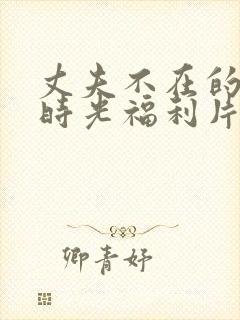 丈夫不在的
時光福利片
卿青妤